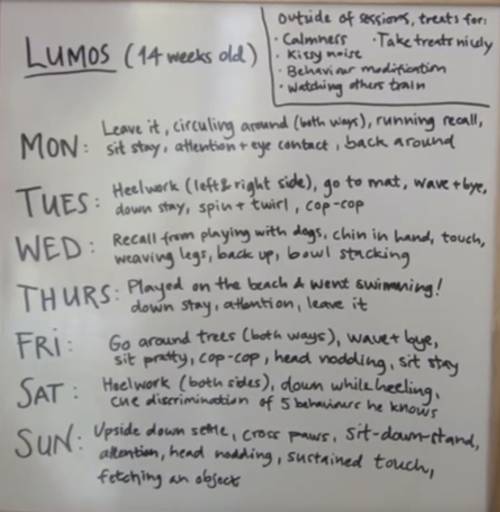 LUMOS (14 weeks old)
Outside of sessions, treats for:
· Calmness · Take treats nicely
· Kissy noise
· Behaviour modification
· Watching others train
MON: Leave it, circuling around (both ways), running recall,
sit stay, attention + eye contact, back around
TUES: Heelwork (left & right side), go to mat, wave + bye,
down stay, spin + twirl, cop-cop
WED: Recall from playing with dogs, chin in hand, touch,
weaving legs, back up, bowl stacking
THURS: Played on the beach & went swimming!
down stay, attention, leave it
FRI: Go around trees (both ways), wave + bye,
sit pretty, cop-cop, head nodding, sit stay
SAT: Heelwork (both sides), down while heeling,
cue discrimination of 5 behaviours he knows
SUN: Upside down settle, cross paws, sit-down-stand,
attention, head nodding, sustained touch,
fetching an object